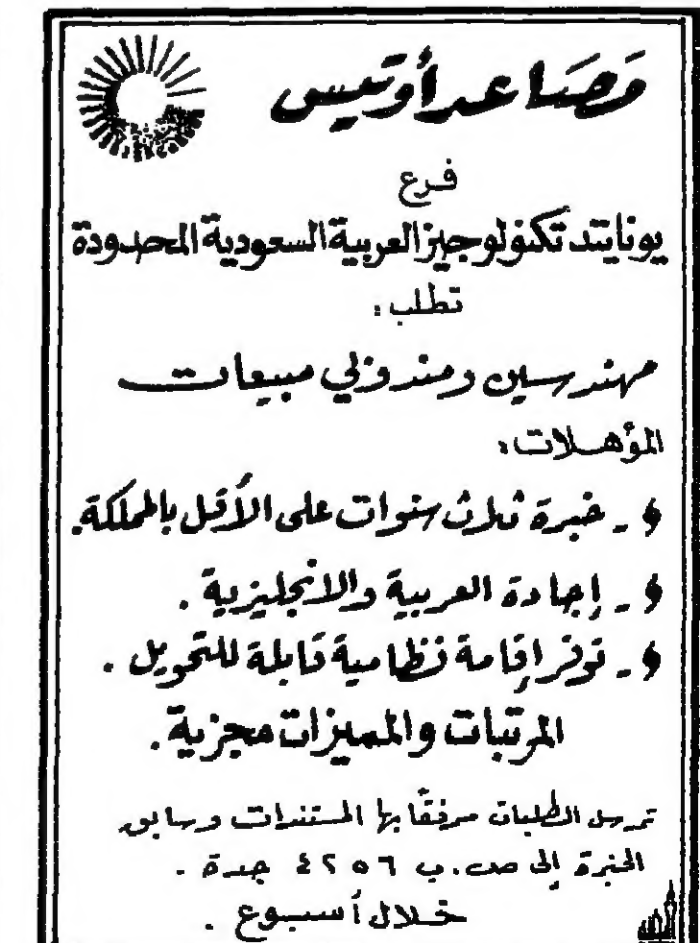 مصاعد أوتيس
فرع
يونايتد تكنولوجيز العربية السعودية المحدودة
تطلب :
مهندسين ومندوبي مبيعات
المؤهلات :
- خبرة ثلاث سنوات على الأقل بالمملكة.
- إجادة العربية والانجليزية .
- توفر إقامة نظامية قابلة للتحويل .
المرتبات والمميزات مجزية .
ترسل الطلبات مرفقًا بها المستندات وسابق
الخبرة إلى ص.ب ٤٢٥٦ جدة .
خلال أسبوع .